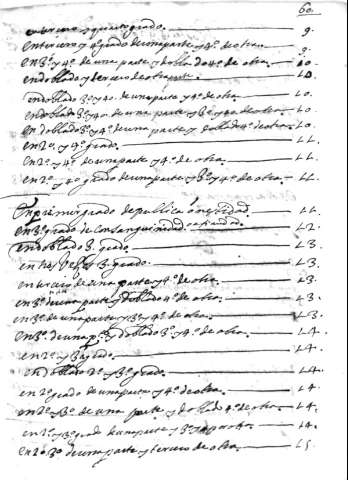 60.
en tercero y quarto grado. 9.
en tercero y 4º grado de una parte y 4º de otra. 9.
en 3º y 4º de una parte y doblado 4º de otra. 10.
en doblado y tercero de otra parte. 10.
en doblado 3º y 4º de una parte y 4º de otra. 10.
en doblado 3º y 4º de una parte y 3º y 4º de otro. 10
en doblado 3º y 4º de una parte y doblado 4º de otra. 10.
en 2º y 4º grado. 11.
en 2º y 4º de una parte y 4º de otra. 11.
en 2º y 4º grado de una parte y 3º y 4º de otra. 11.
En primer grado de publica onestidad. 11.
en 3º grado de consanguinidad 12.
en doblado 3º grado. 13.
en tres vezes 3º grado. 13.
en tercero de una parte y 4º de otra. 13.
en 3º de una parte y doblado 4º de otra. 13.
en 3º de una parte y 3º y 4º de otra. 13
en 3º de una pte y doblado 3º y 4º de otra. 14.
en 2º y 3º grado. 14.
en doblado 2º y 3º grado. 14.
en 2º grado de una parte y 4º de otra. 14
en 2º y 3º de una parte y doblado 4º de otro. 14.
en 2º y 3º grado de una parte y 3º 14.
en 2º 3º de una parte y tercero de otra. 15.